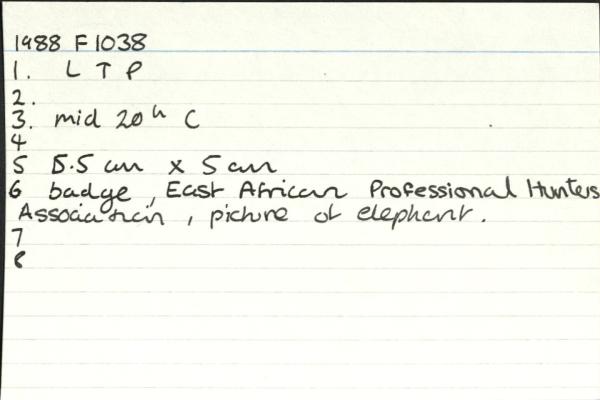 1988 F 1038
1. L T P
2.
3. mid 20th C
4
5 5.5 cm x 5 cm
6 badge, East African Professional Hunters
Association, picture of elephant.
7
8